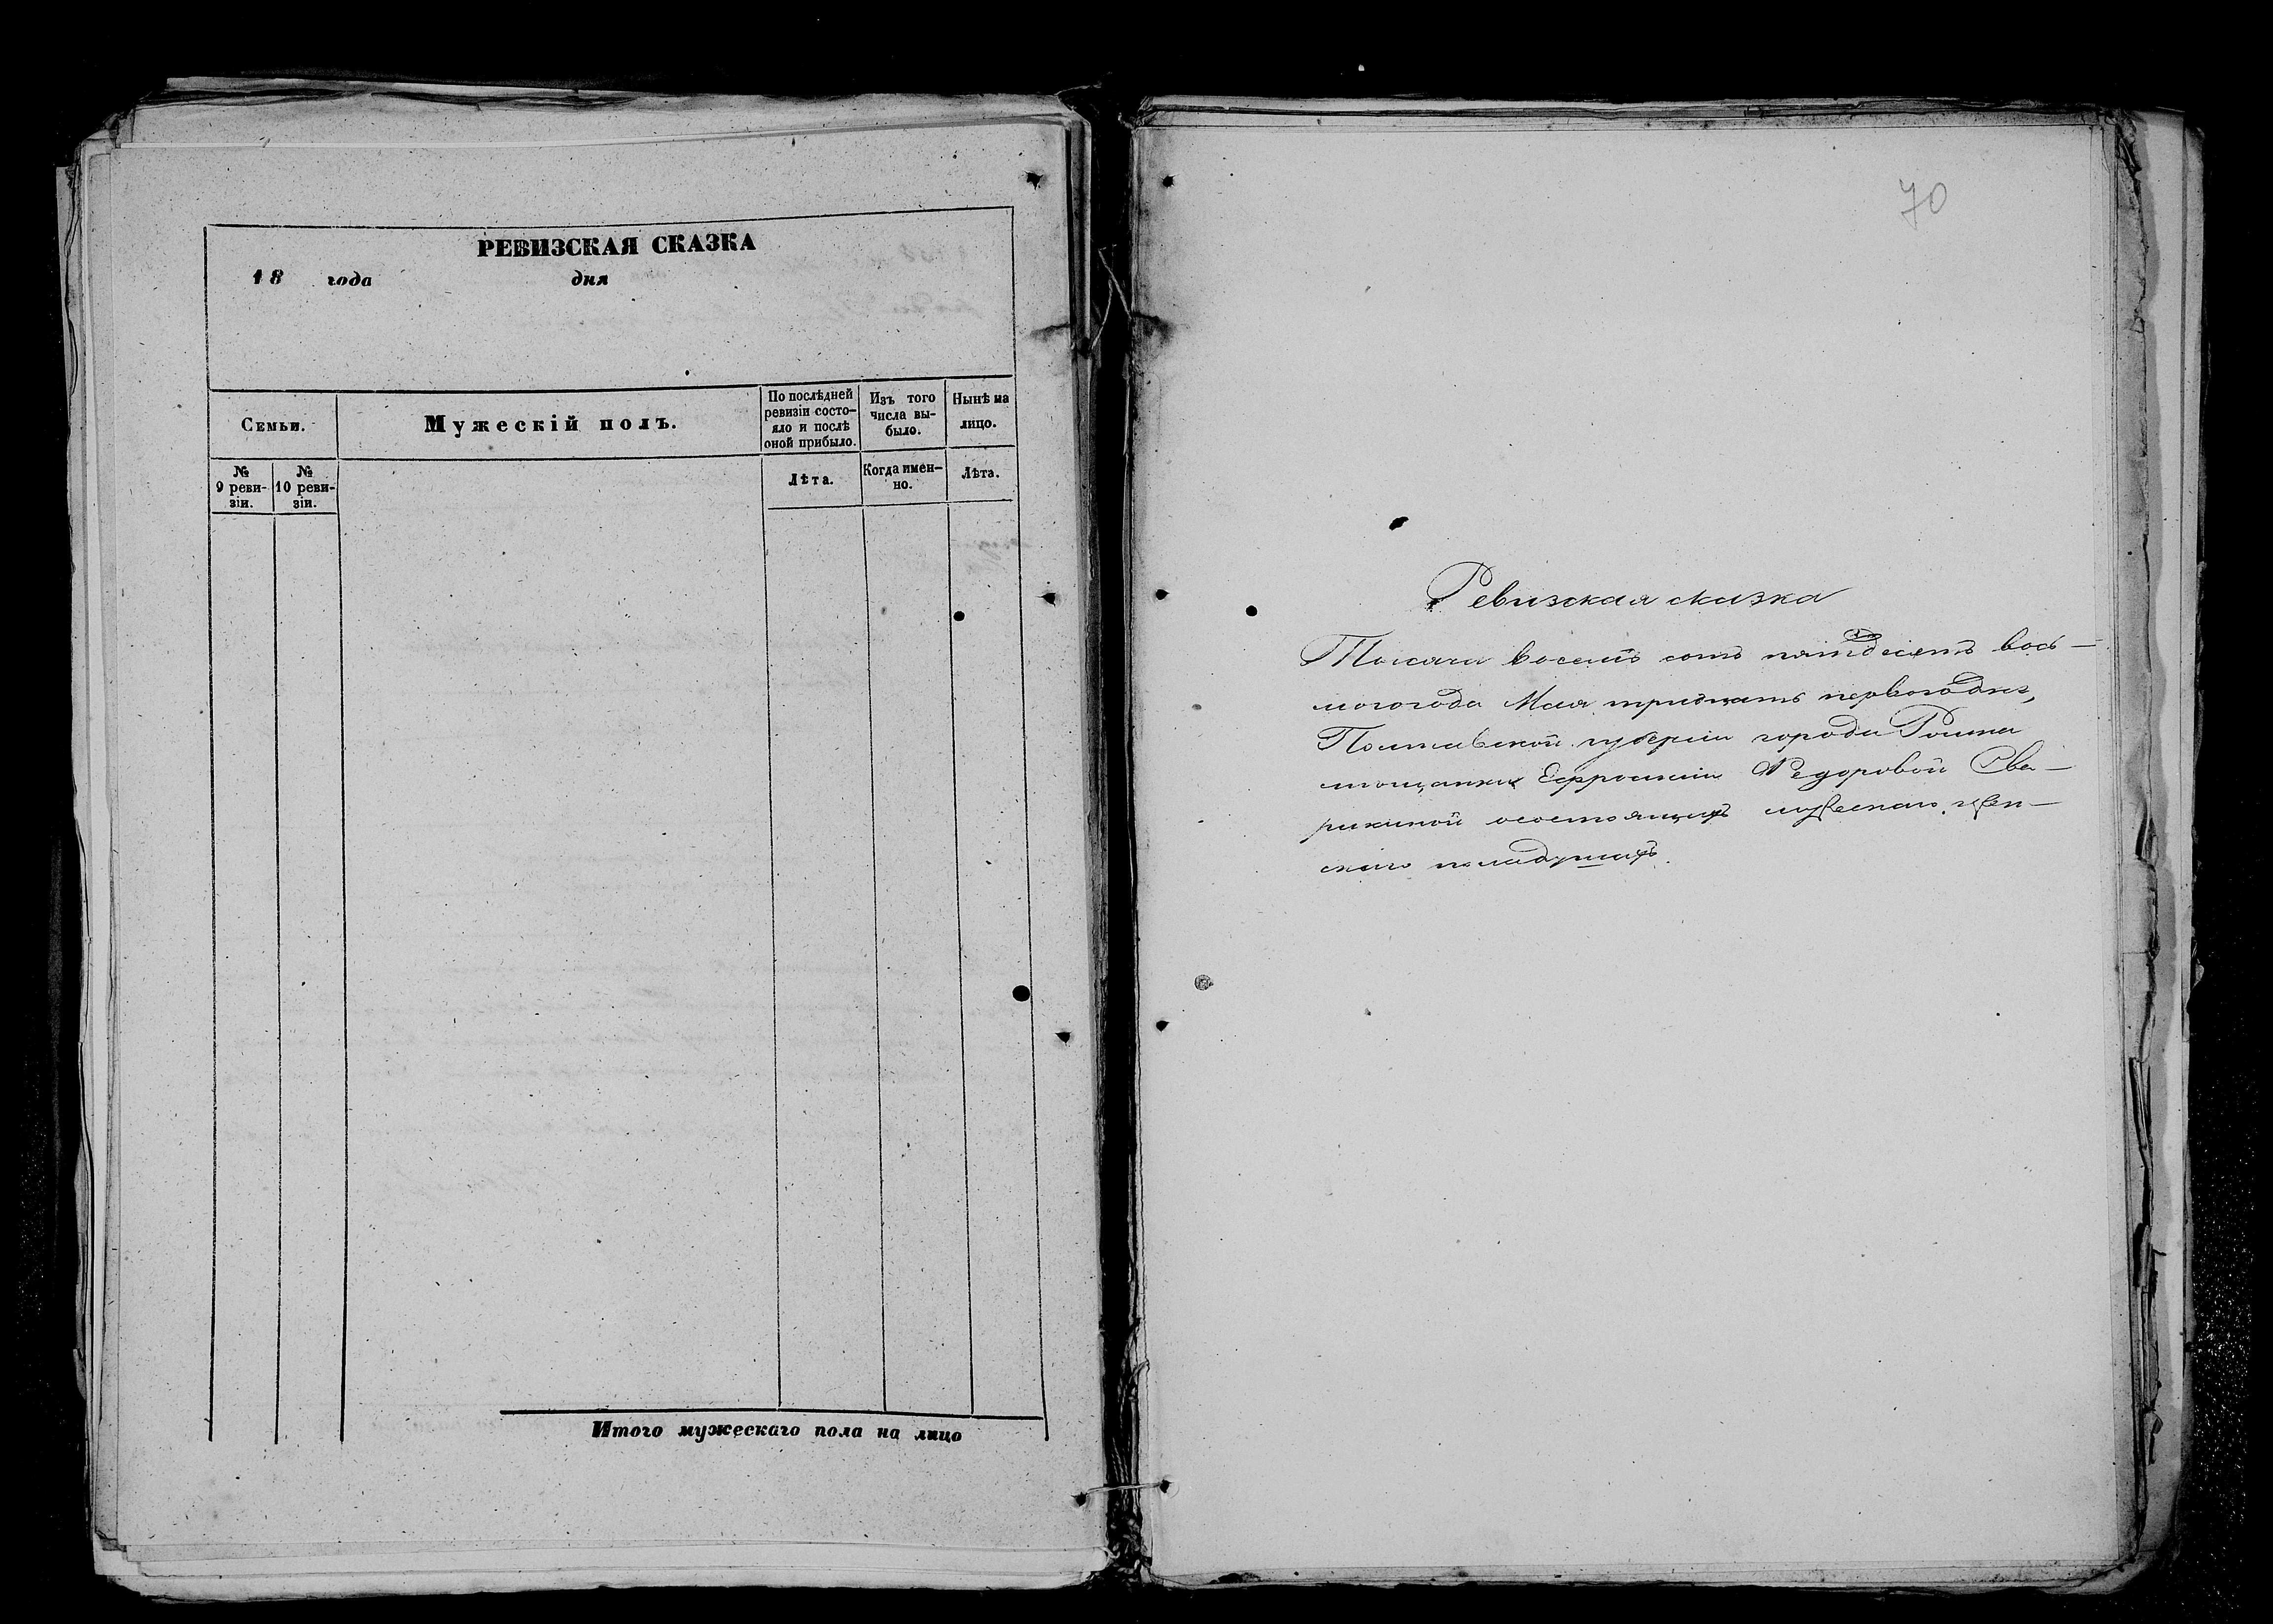 РЕВИЗСКАЯ СКАЗКА
18 года дня
Семьи.
Мужескій полъ.
По послѣдней ревизіи состо-
яло и послѣ
оной прибыло.
Изъ того
числа вы-
было.
Нынѣ на
лицо.
№
9 реви-
зіи.
№
10 реви-
зіи.
Лѣта.
Когда имен-
но.
Лѣта.
Итого мужескаго пола на лицо
70
Ревизская сказка
Тысяча восемь сотъ пятдесятъ вось-
могогода Мая тридцать первогодня,
Полтавской губерніи города Ромна
мещанки Ефросиніи Федоровой
осостоящихъ мужеска. жен-
скаго поладушахъ.